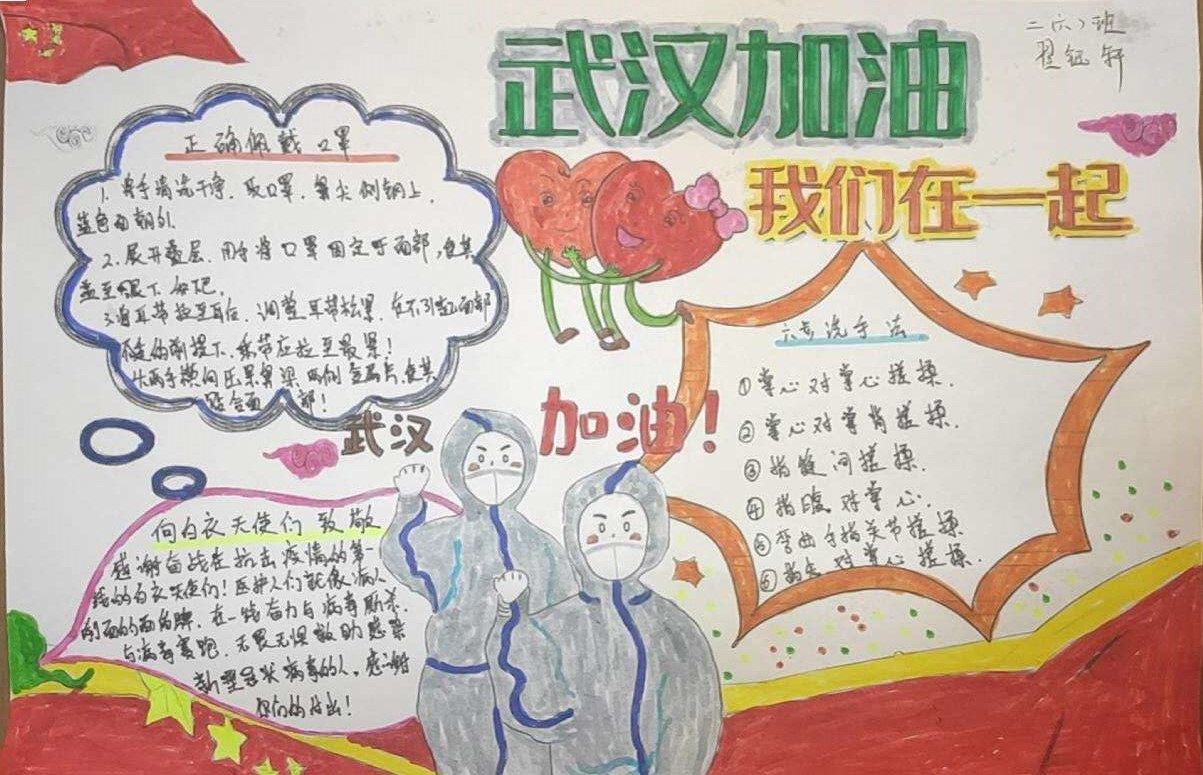 武汉加油
二(六)班
翟钰轩
我们在一起
正确佩戴口罩
1.将手清洗干净.取口罩.鼻尖侧钢上.
蓝色面朝外.
2.展开叠层.用手将口罩固定于面部,使其
盖至眼下
3.将耳带拉至耳后.调整耳带松紧.在不引起面部
不适的前提下.系带应拉至最紧!
4.两手横向压紧鼻梁两侧金属片.使其
贴合面部!
六步洗手法
①掌心对掌心搓揉.
②掌心对掌背搓揉.
③指缝间搓揉.
④指腹对掌心.
⑤弯曲手指关节搓揉
⑥指尖对掌心搓揉.
武汉加油!
向白衣天使们致敬
感谢奋战在抗击疫情的第一
线的白衣天使们!医护人们就像病人
前面的面的牌.在一线奋力与病毒厮杀.
与病毒赛跑.无畏无惧救助感染
新型冠状病毒的人,感谢
你们的付出!